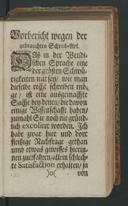 Vorbericht wegen der
gebrauchten Schreib-Art.
Daß in der Wendi-
schen Sprache eine
der grösten Schwü-
rigkeiten mit sey, wie man
dieselbe recht schreiben mö-
ge, ist eine ausgemachte
Sache bey denen, die davon
einige Wissenschafft haben;
zumahl Sie noch nie gründ-
lich excoliret worden. Ich
habe zwar hier und dort
fleißige Nachfrage gethan
und etwas gewisses hierin-
nen zu erhalten, allein schlech-
te Satisfaction erhalten, in
)o( von